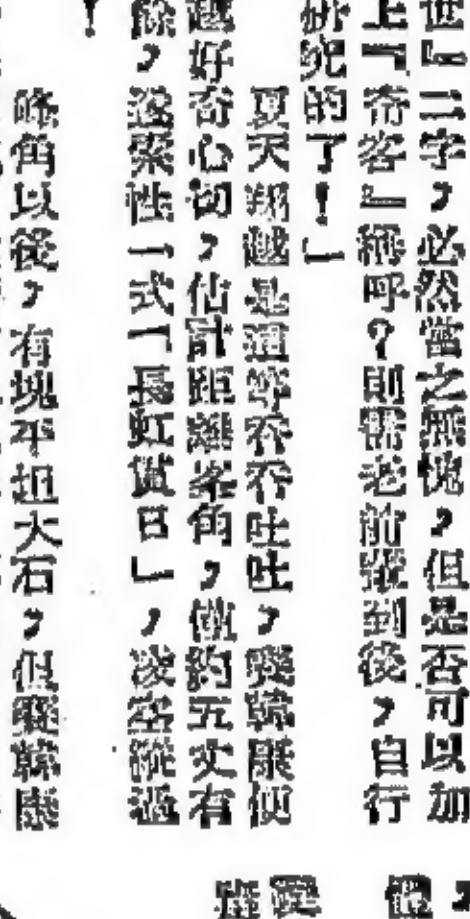 世』二字，必然當之無愧，但是否可以加
上『奇客』稱呼？則需老前輩到後，自行
研究的了！」
夏天翔越是這等吞吞吐吐，韓便
越好奇心切，估計距離峯角，僅約五丈有
餘，遂索性一式「長虹貫日」，凌空縱過
！
峰角以後，有塊平坦大石，但韓